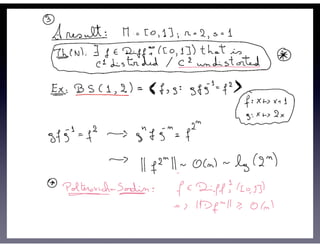 ③
A result: M = [0,1]; r=2, s=1
Th(N). ∃ f ∈ Diff^∞_+([0,1]) that is
C¹ distorted / C² undistorted ⊛
Ex: BS(1,2) = <f,g: gfg⁻¹=f²>
f: x↦x+1
g: x↦2x
gfg⁻¹=f² ⟿ gⁿfg⁻ⁿ=f^{2ⁿ}
⟿ ||f^{2ⁿ}|| ~ O(n) ~ lg(2ⁿ)
Polterovich Sodin: f ∈ Diff¹([0,1])
=> ||Dfⁿ|| ≥ O(n)